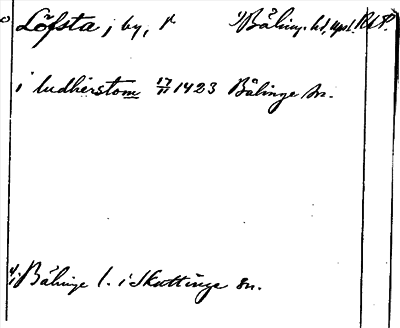 Löfsta, by, 1 1) Bälinge hd, Upsl. RAP.
i ludherstom 17/11 1423 Bälinge sn.
1) i Bälinge l. i Skuttunge sn.